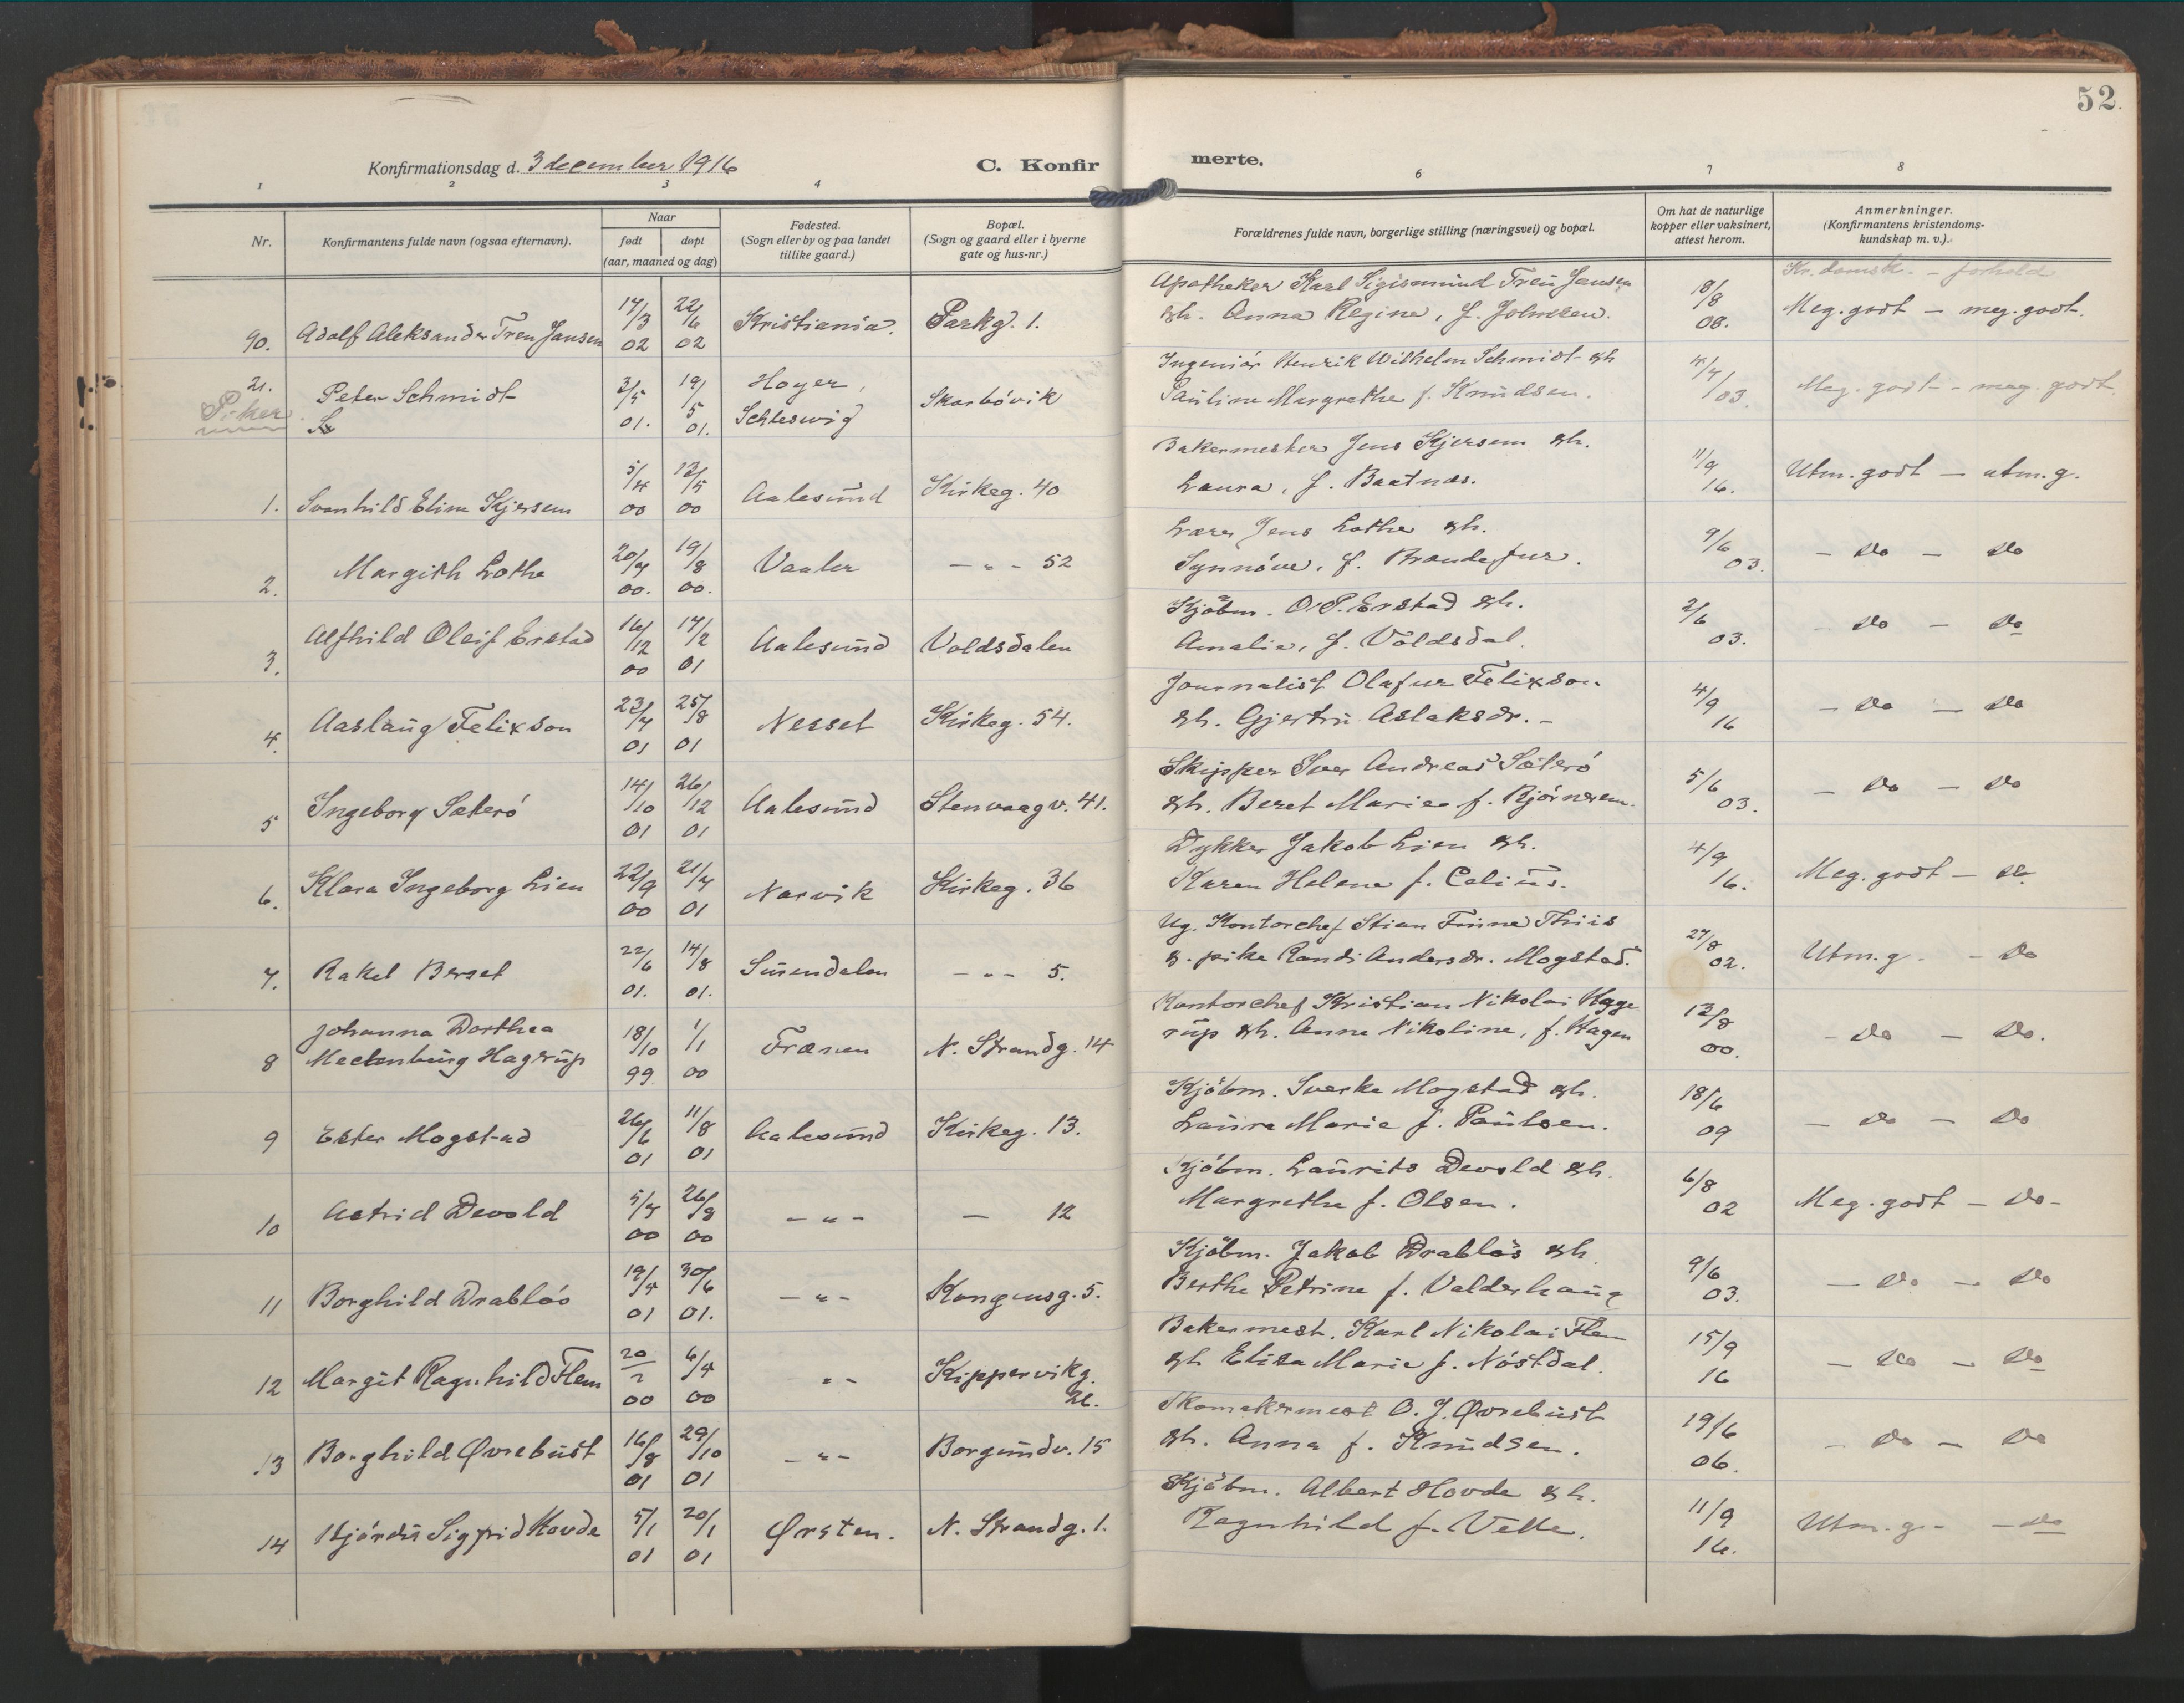 52.
Konfirmationsdag d. 3 december 1916
C. Konfirmerte.
1 2 3 4 6 7 8
Nr.
Konfirmantens fulde navn (ogsaa efternavn).
Naar
født døpt
(aar, maaned og dag)
Fødested.
(Sogn eller by og paa landet
tillike gaard.)
Bopæl.
(Sogn og gaard eller i byerne
gate og hus-nr.)
Forældrenes fulde navn, borgerlige stilling (næringsvei) og bopæl.
Om hat de naturlige
kopper eller vaksinert,
attest herom.
Anmerkninger.
(Konfirmantens kristendoms-
kundskap m. v.).
Kr. domsk. - forhold
90. Adolf Aleksander Treu Jansen 17/3 02 22/6 02 Kristiania. Parkg. 1.
Apotheker Karl Sigismund Treu Jansen
&h. Anna Regine, f. Johnsen. 18/8 08. Meg. godt - meg. godt.
21. Peter Schmidt 3/5 01. 19/5 01. Hoyer, Schleswig Skarbövik
Ingeniör Henrik Wilhelm Schmidt &h
Pauline Margrethe f. Knudsen. 4/4 03. Meg. godt - meg. godt.
Piker
1. Svanhild Eline Kjersem 5/4 00 13/5 00 Aalesund Kirkeg. 40
Bakermester Jens Kjersem &h.
Laura, f. Baatnes. 11/9 16. Utm. godt - utm. g.
2. Margith Lothe 20/7 00. 19/8 00. Vaaler - " - 52
Lærer Jens Lothe &h.
Synnöve, f. 9/6 03. - Do - Do
3. Alfhild Oleif Erstad 16/12 00 17/2 01 Aalesund Voldsdalen
Kjöbm. O. P. Erstad &h.
Amalie, f. Voldsdal. 2/6 03. - Do - Do
4. Aaslaug Felixson 23/7 01 25/8 01 Nesset Kirkeg. 54.
Journalist Olafur Felixson
&h. Gjertru Aslaksdr. - 4/9 16 - Do - Do
5 Ingeborg Sæterö 14/10 01 26/12 01 Aalesund Stenvaagv. 41.
Skipper Iver Andreas Sæterö
&h. Beret Marie f. Björnsem. 5/6 03. - Do - Do
6. Klara Ingeborg Lien 22/9 00 21/7 01 Narvik Kirkeg. 36
Dykker Jakob Lien &h.
Karen Helene f. Celius. 4/9 16. Meg. godt - Do
7. Rakel Berset 22/6 01. 14/8 01. Surendalen - " - 5.
Ug. Kontorchef Stian Finne Thiis
&. pike Randi Andersdr. Mogstad. 27/8 02. Utm. g. - Do
8 Johanna Dorthea
Mecklenburg Hagerup 18/10 99 1/1 00 Frænen N. Strandg. 14
Kontorchef Kristian Nikolai Hage
rup &h. Anne Nikoline, f. Hagen 12/8 00. - Do - Do.
9 Ester Mogstad 26/6 01 11/8 01 Aalesund Kirkeg. 13.
Kjöbm. Sverke Mogstad &h.
Laura Marie f. Paulsen. 18/6 09 - Do - Do
10 Astrid Devold 5/7 00 26/8 00 - " - - 12
Kjöbm. Laurits Devold &h.
Margrethe f. Olsen. 6/8 02 Meg. godt - Do -
11 Borghild Drablös 19/4 01 30/6 01. - " - Kongensg. 5.
Kjöbm. Jakob Drablös &h
Berthe Petrine f. Valderhaug 9/6 03. - Do - Do
12 Margit Ragnhild Flem 20/2 00 6/4 00 " - Kippervikg. 26.
Bakermest. Karl Nikolai Flem
&h Elisa Marie f. Nöstdal. 15/9 16 - Do - Do
13 Borghild Øvrebust 16/8 01 29/10 01 - " - Borgundv. 15
Skomakermest O. J. Øvrebust
&h. Anna f. Knudsen. 19/6 06. - Do - Do
14 Hjördis Sigfrid Hovde 5/1 01 20/1 01 Ørsten. N. Strandg. 1.
Kjöbm. Albert Hovde &h.
Ragnhild f. Velle. 11/9 16. Utm. g. - Do